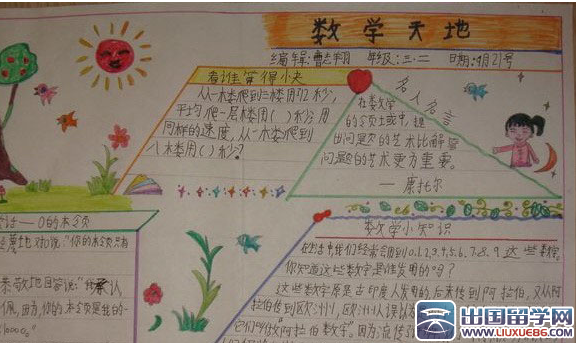 数学天地
编辑:曹志翔 年级:三.二 日期:9月21号
看谁算得小夹
从一楼爬到三楼用12秒,
平均爬一层楼用( )秒?用
同样的速度,从一楼爬到
八楼用( )秒?
名人名言
在数学
的令页土或中,提
出问是页的艺术比解答
问是页的艺术更为重要。
——康托尔
——0的本令页
地对0说:"你的本令页只有
恭敬地回答说:"我承认
佩,因为,你的本令页是我的
数学小知识
在生活中,我们经常会用到0.1.2.3.4.5.6.7.8.9这些数字,
你知道这些数字是谁发明的吗?
这些数字原是古印度人发明的,后来传到阿拉伯,又从阿
拉伯传到欧洲,欧洲人误以为
它们叫做"阿拉伯数字"。因为流传
出国留学网
WWW.LIUXUE86.COM